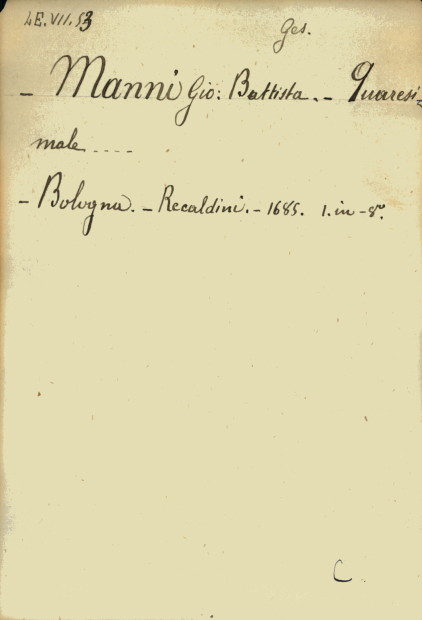 LE.VII.53
Ges.
- Manni Gio: Battista. - Quaresi-
male ....
- Bologna. - Recaldini. - 1685. 1. in - 8°.
C